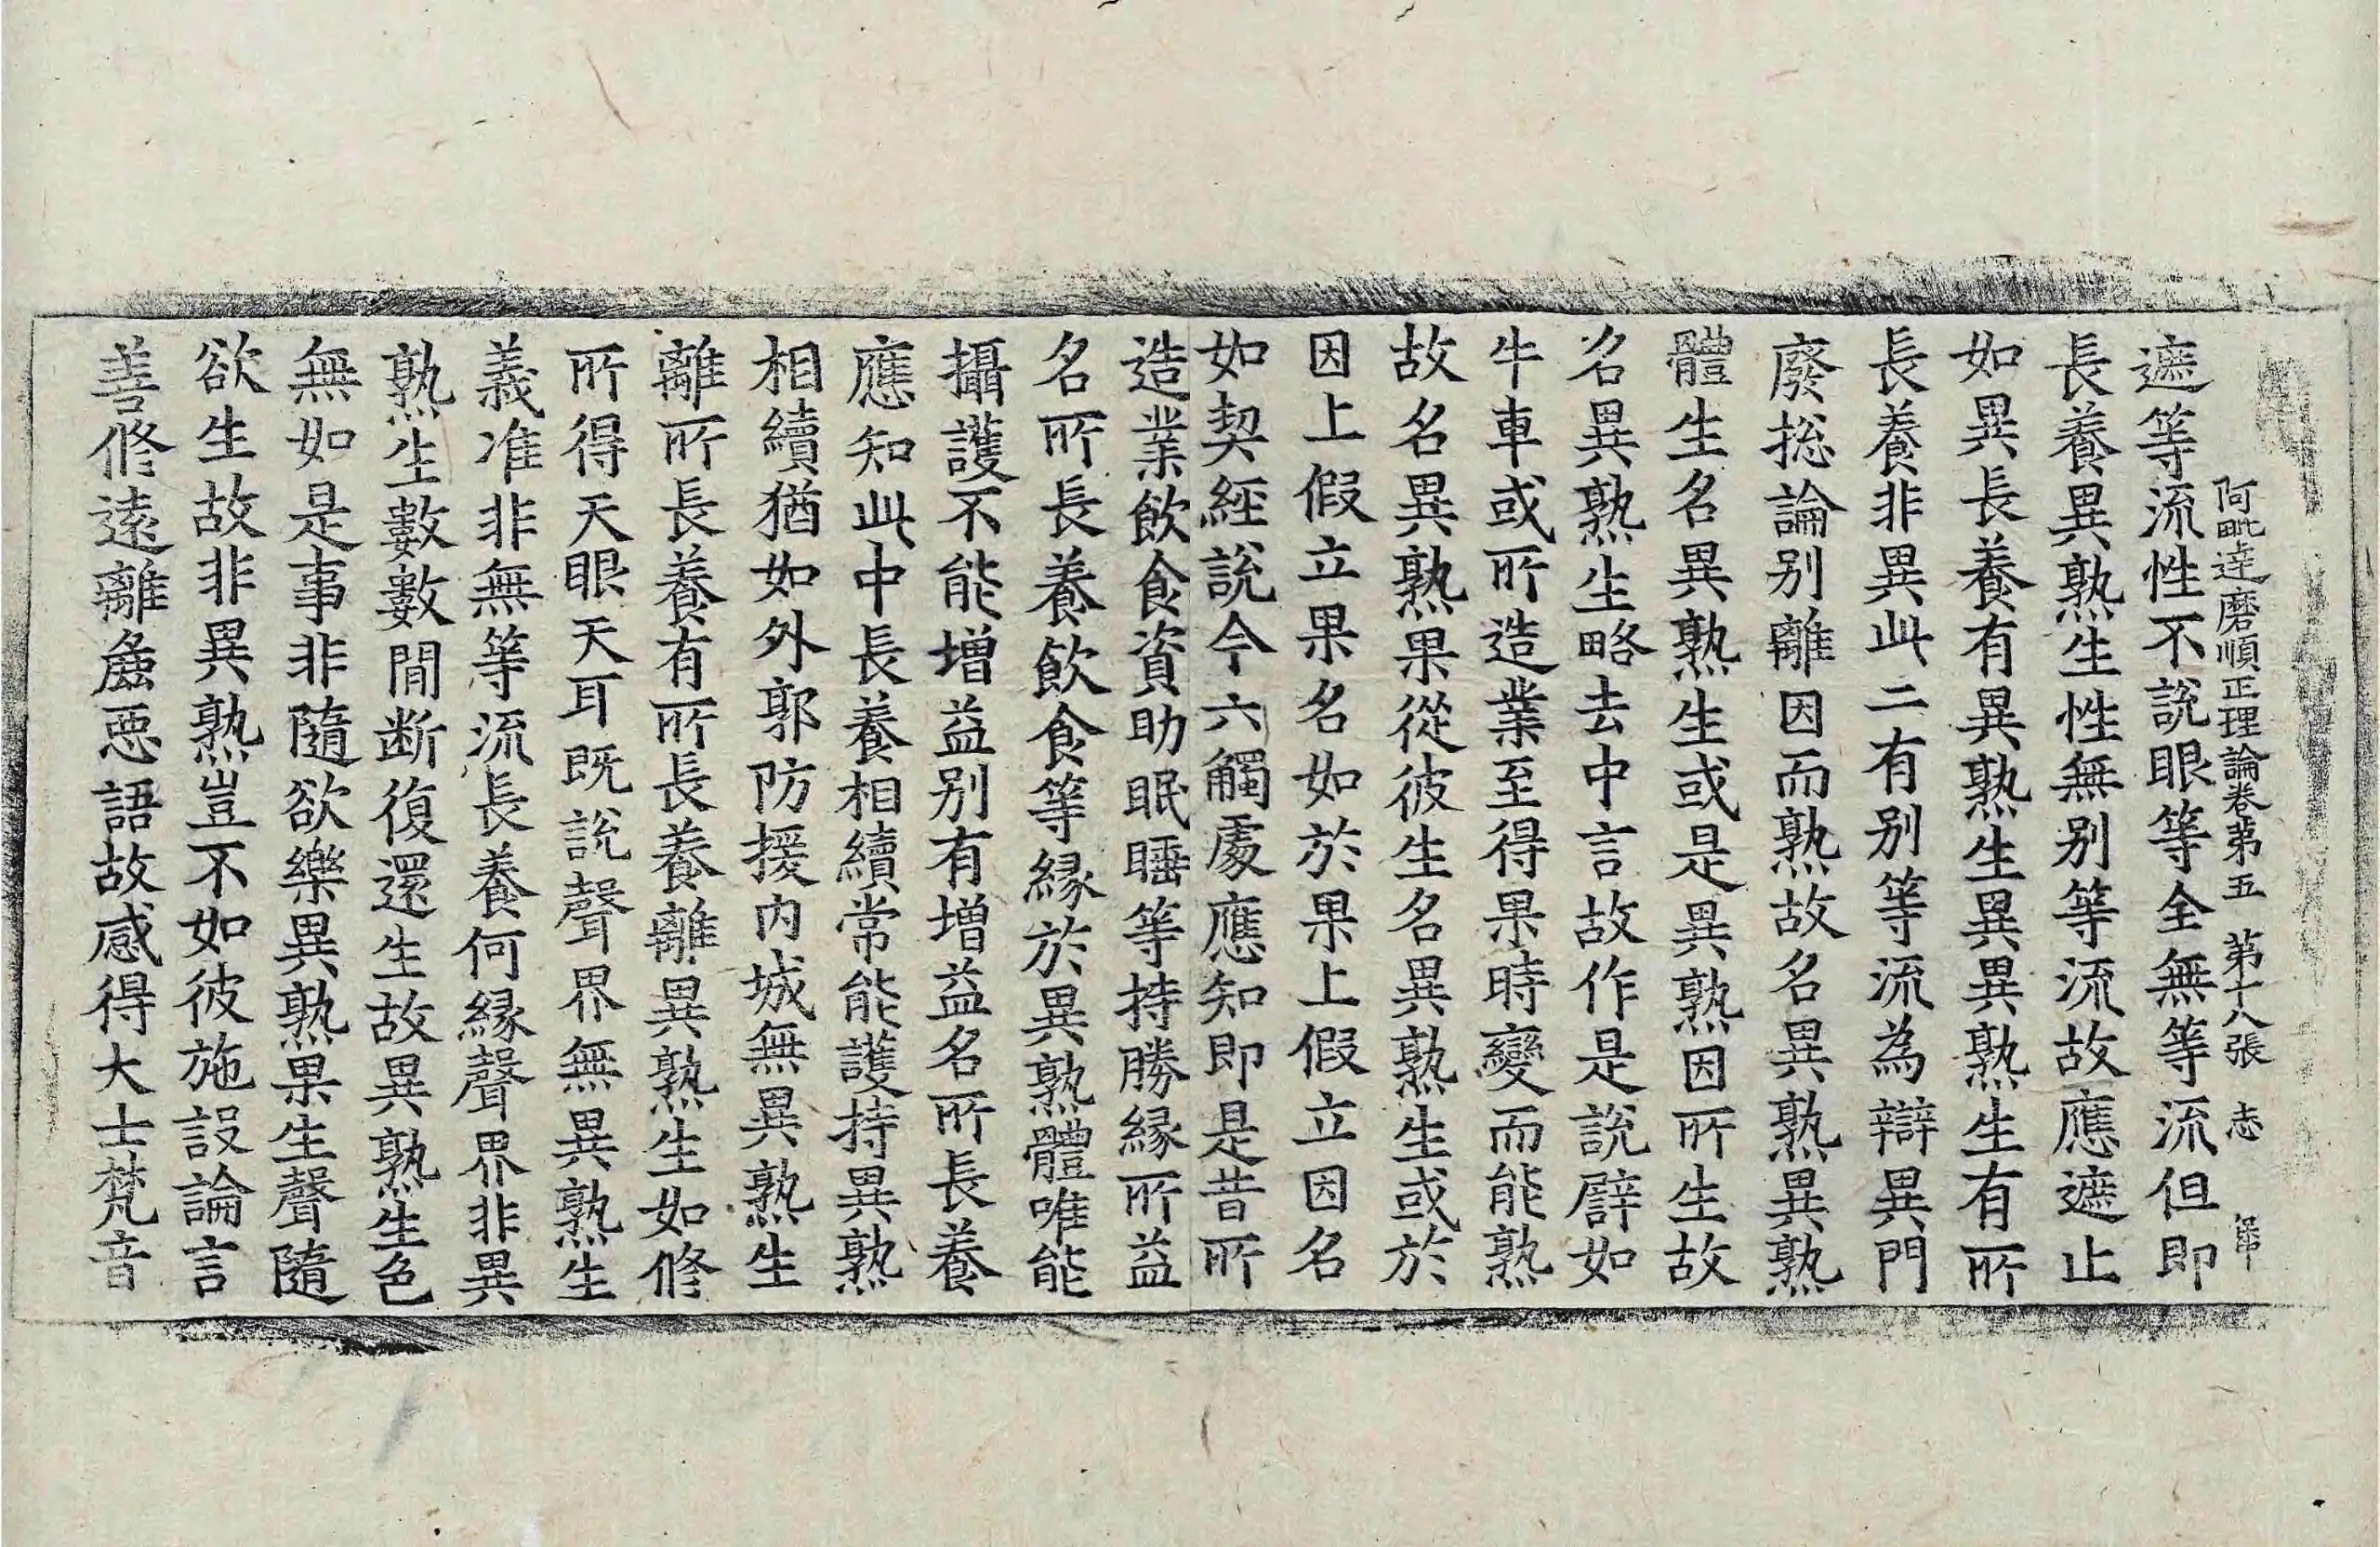 阿毗達磨順正理論卷第五 第十八張 志
遮等流性不說眼等全無等流但即
長養異熟生性無別等流故應遮止
如異長養有異熟生異異熟生有所
長養非異此二有別等流為辯異門
廢揔論別離因而熟故名異熟異熟
體生名異熟生或是異熟因所生故
名異熟生略去中言故作是說譬如
牛車或所造業至得果時變而能熟
故名異熟果從彼生名異熟生或於
因上假立果名如於果上假立因名
如契經說今六觸處應知即是昔所
造業飲食資助眠睡等持勝緣所益
名所長養飲食等緣於異熟體唯能
攝護不能增益別有增益名所長養
應知此中長養相續常能護持異熟
相續猶如外郭防援內城無異熟生
離所長養有所長養離異熟生如修
所得天眼天耳既說聲界無異熟生
義准非無等流長養何緣聲界非異
熟生數數間斷復還生故異熟生色
無如是事非隨欲樂異熟果生聲隨
欲生故非異熟豈不如彼施設論言
善修遠離麁惡語故感得大士梵音